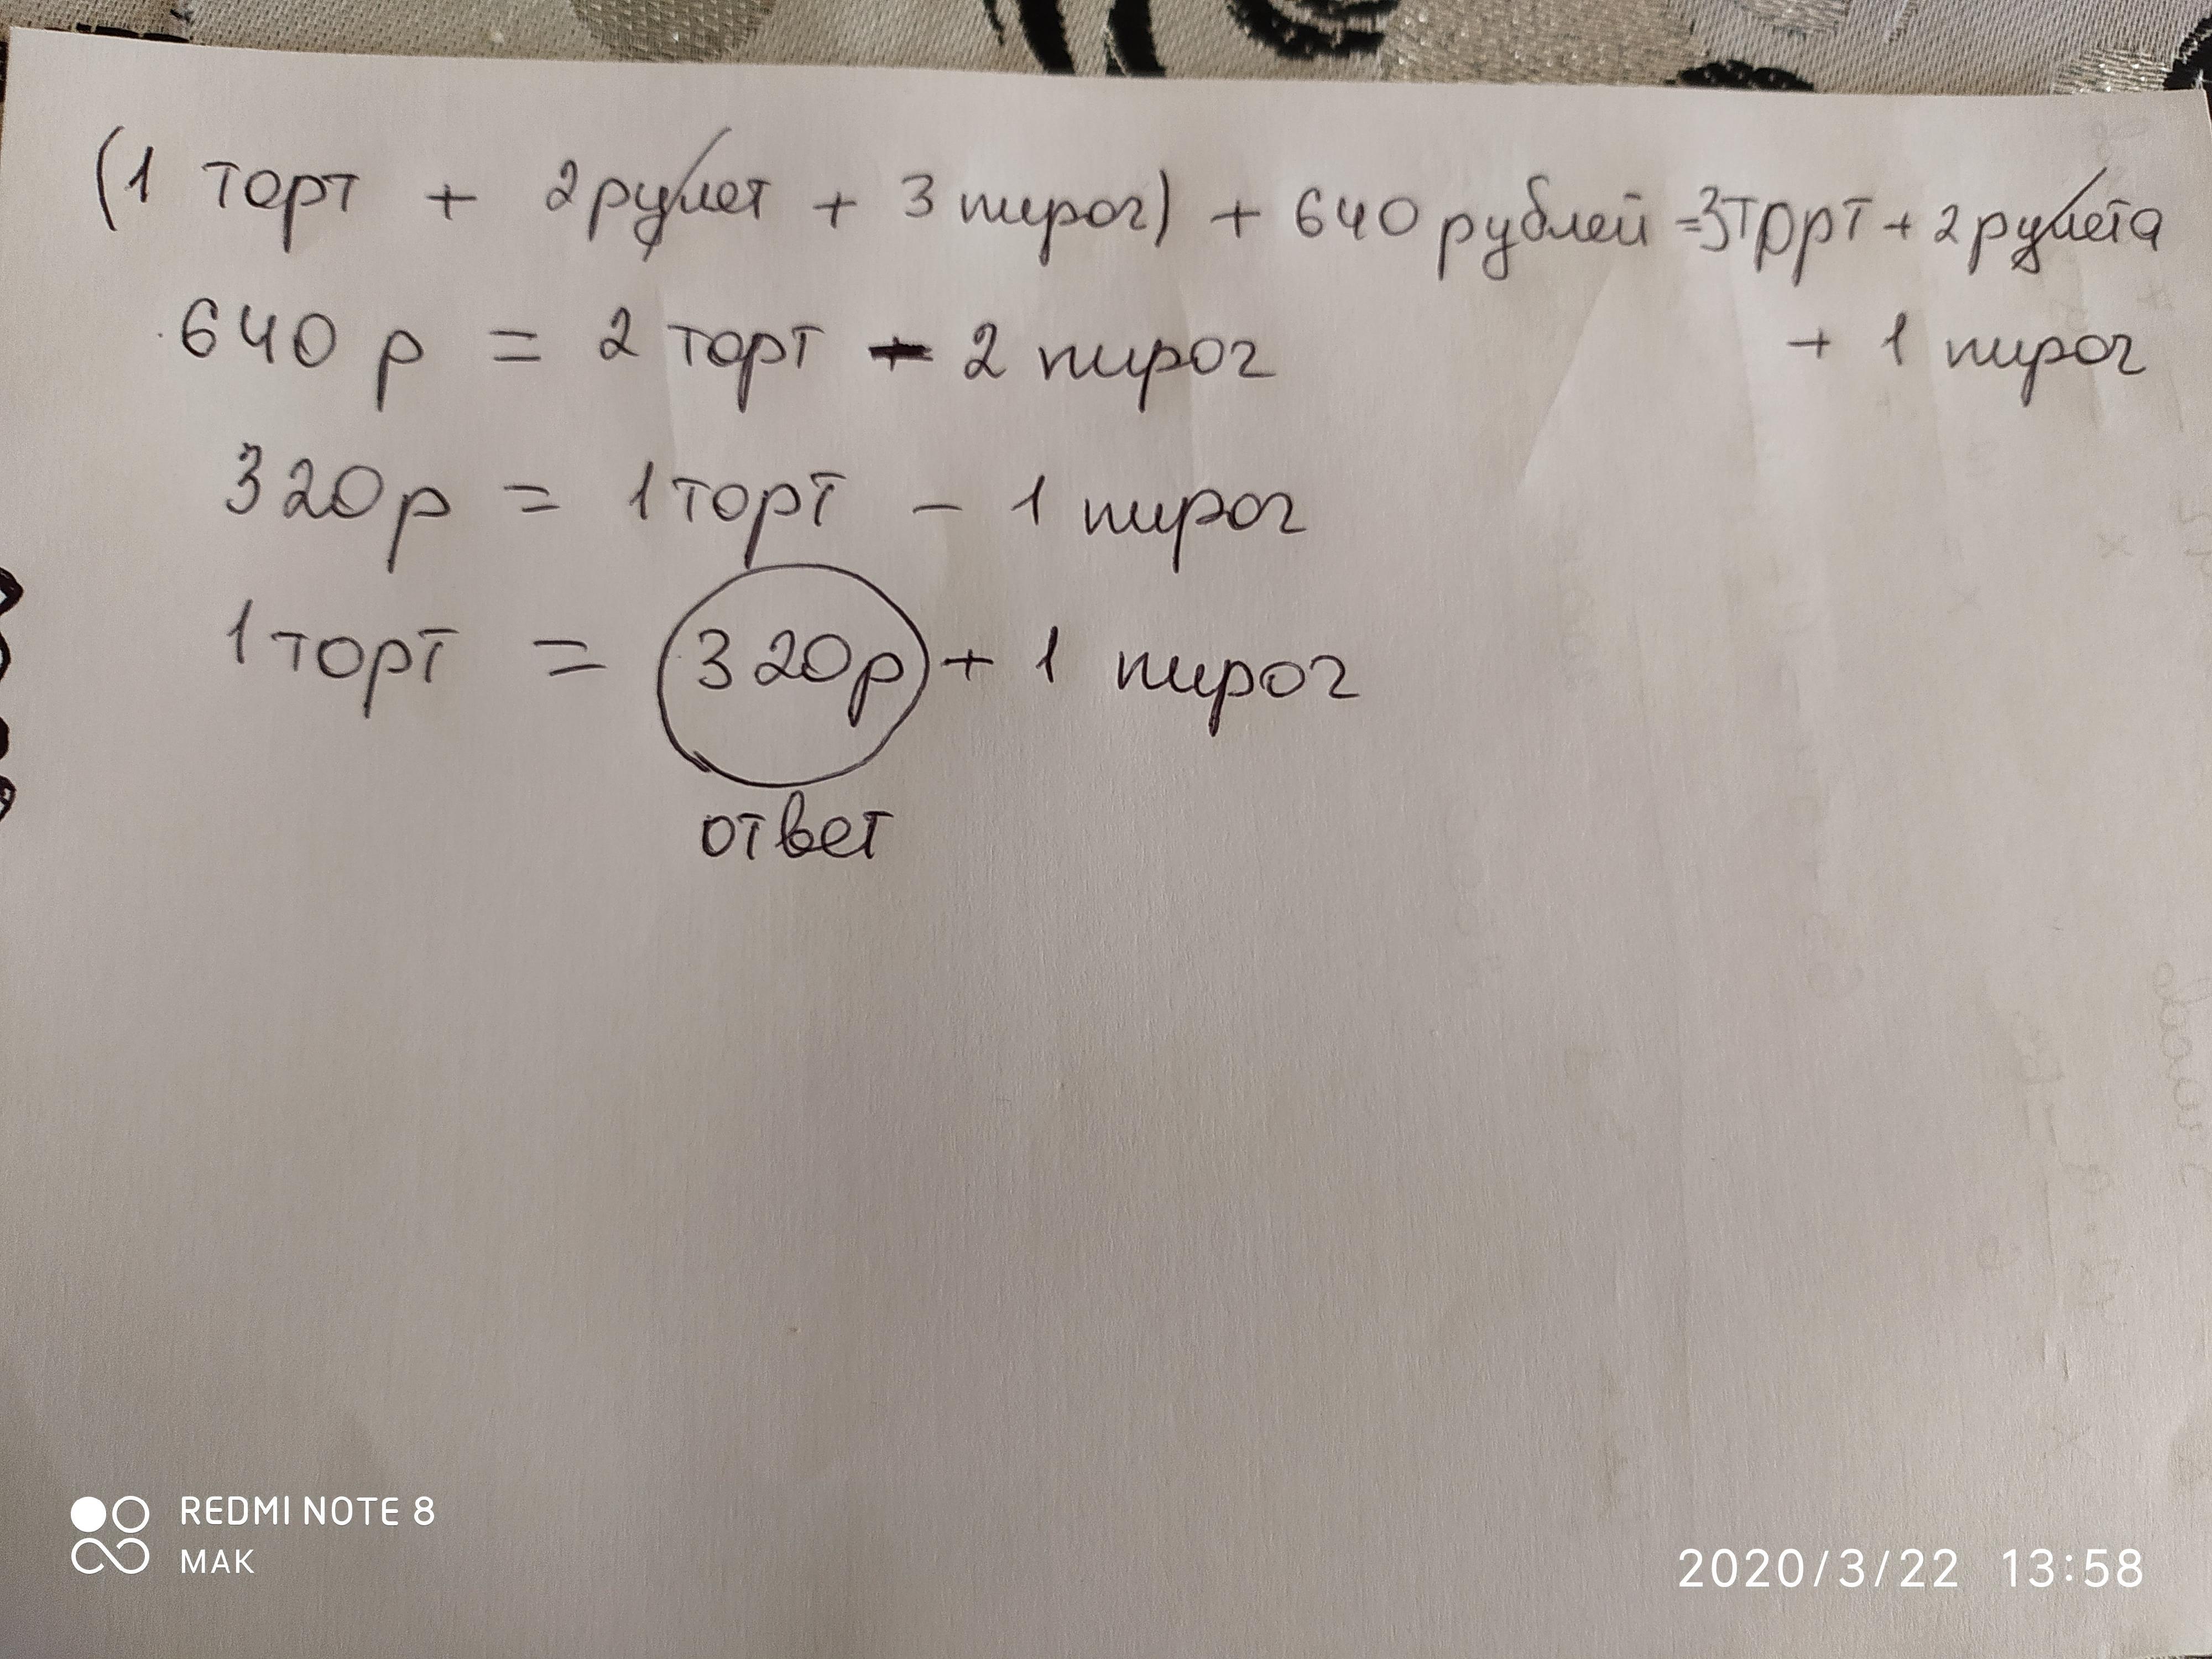 (1 торт + 2 рулет + 3 пирог) + 640 рублей = 3 торт + 2 рулета
+ 1 пирог
640 р = 2 торт - 2 пирог
320р = 1 торт - 1 пирог
1 торт = 320р + 1 пирог
ответ
REDMI NOTE 8
МАК
2020/3/22 13:58